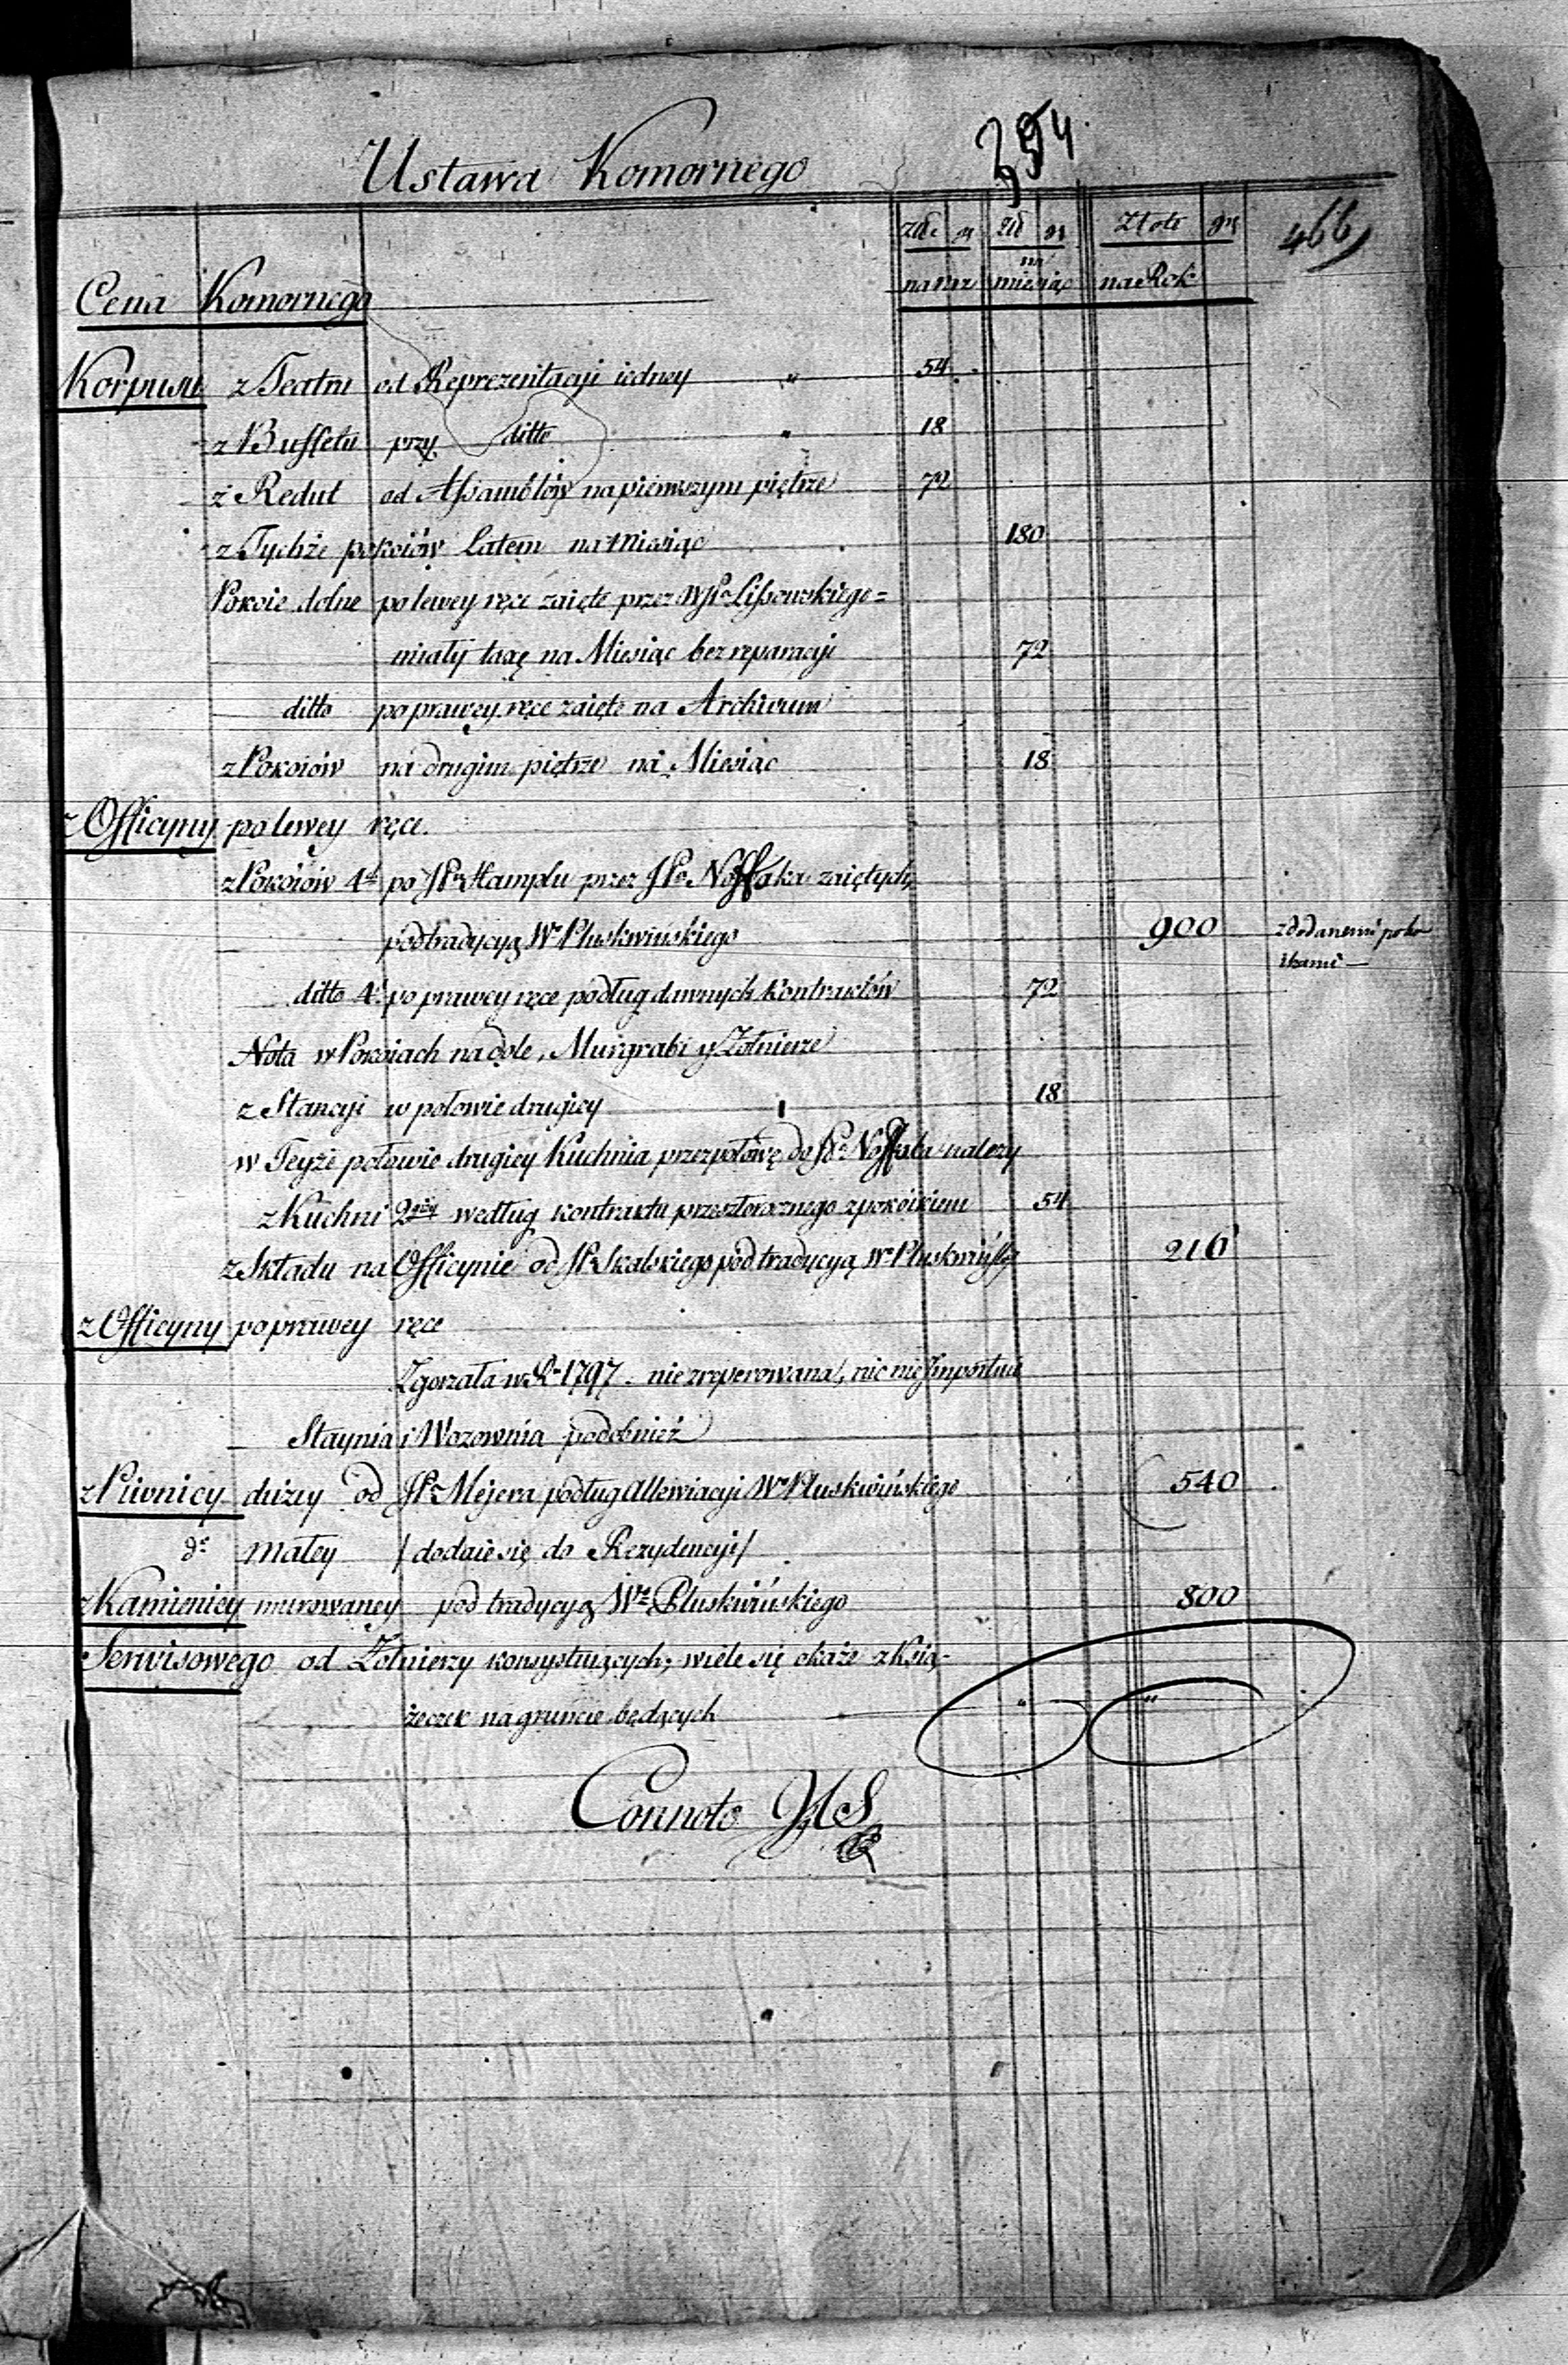 354
Ustawa Komornego
466
złł gr złł gr Złote gr
na raz na miesiąc na Rok
Cena Komornego
Korpusu z Teatru od Reprezentacyi iedney " 54
z Buffetu przy ditto " 18
z Redut od Assamblów na pierwszym piętrze 72
z Tychże pokoiów Latem na Miesiąc 180
Pokoie dolne po lewey ręce zaięte przez WJPa Lissowskiego=
miały taxę na Miesiąc bez reparacyi 72
ditto po prawey ręce zaięte na Archivum
z Pokoiów na drugim piętrze na Miesiąc 18
z Officyny po lewey ręce.
z Pokoiów 4ch po JP Hamplu przez JPa Noffoka zaiętych,
pod tradycyą Wo Pluskwińskiego 900 z dodanemi poko
ikami —
ditto 4. po prawey ręce podług dawnych Kontraktów 72
Nota w Pokoiach na dole, Murgrabi y Zołnierze
z Stancyi w połowie drugiey 18
w Teyże połowie drugiey Kuchnia przez połowę do JPa Noffoka należy
z Kuchni 2giey według kontraktu przeszłorocznego z pokoikiem 54
z Składu na Officynie od JP Skalskiego pod tradycyą Wo Pluskwińsgo 216
z Officyny po prawey ręce
Zgorzała w R. 1797. nie zreperowana, nic nie Importuie
Staynia i Wozownia podobnież
z Piwnicy dużey od JP Mejera podług Allewiacyi Wo Pluskwińskiego 540
do małey / dodaie się do Rezydencyi /
z Kamienicy murowaney pod tradycyą Wo Pluskwińskiego 800
Serwisowego od Zołnierzy konsystuiących; wiele się okaże z Ksią-
żeczek na gruncie będących " "
Connoto